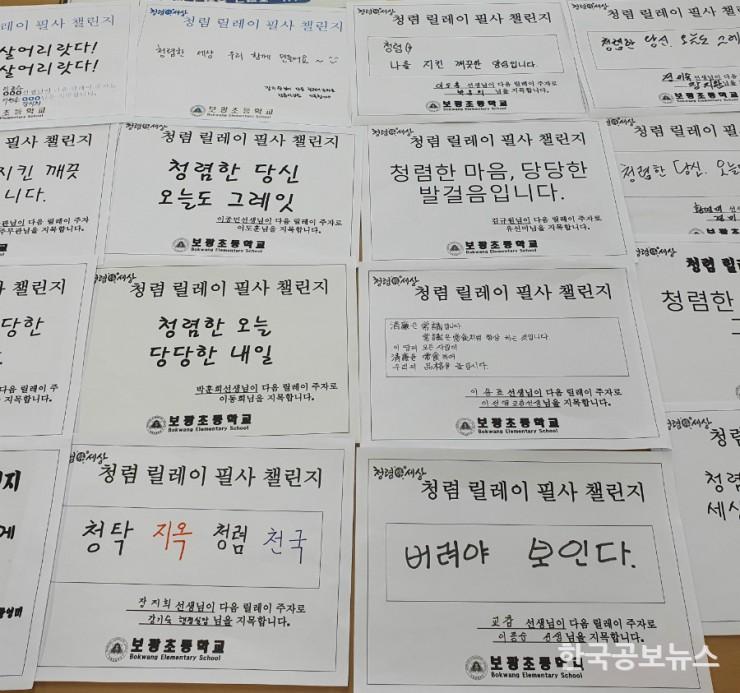 살어리랏다!
살어리랏다!
초등학교
청렴한 세상
청렴 릴레이 필사 챌린지
청렴한 세상 우리 함께 만들어요 ~
보광초등학교
Bokwang Elementary School
청렴 세상
청렴 릴레이 필사 챌린지
청렴은
나를 지킨 깨끗한 양심입니다.
선생님이 다음 릴레이 주자로
님을 지목합니다.
보광초등학교
Bokwang Elementary School
청렴 릴레이 필사 챌린지
청렴한 당신, 오늘도 그레
선생님이 다음 릴레
님을 지목합니다.
보광초등학교
Bokwang Elementary School
사 챌린지
지킨 깨끗
니다.
님이 다음 릴레이 주자
님을 지목합니다.
등학교
청렴 세상
청렴 릴레이 필사 챌린지
청렴한 당신
오늘도 그레잇
이종민선생님이 다음 릴레이 주자로
이도훈님을 지목합니다.
보광초등학교
Bokwang Elementary School
청렴 세상
청렴 릴레이 필사 챌린지
청렴한 마음, 당당한
발걸음입니다.
김규원님이 다음 릴레이 주자로
유선미님을 지목합니다.
보광초등학교
Bokwang Elementary School
청렴 릴레이
청렴한 당신, 오늘
보광초
사 챌린지
당한
다음 릴레이 주
지목합니다.
학교
청렴 세상
청렴 릴레이 필사 챌린지
청렴한 오늘
당당한 내일
박훈희선생님이 다음 릴레이 주자로
이동희님을 지목합니다.
보광초등학교
Bokwang Elementary School
청렴 세상
청렴 릴레이 필사 챌린지
淸廉은 常識입니다
常識은 常食처럼 항상 하는 것입니다
이 땅의 모든 사람이
淸廉을 常食하여
우리의 品格을 높입시다.
선생님이 다음 릴레이 주자로
선생님을 지목합니다.
보광초등학교
Bokwang Elementary School
청렴 세상
청렴 릴
청렴한
지
게
청렴 세상
청렴 릴레이 필사 챌린지
청탁 지옥 청렴 천국
장지희 선생님이 다음 릴레이 주자로
님을 지목합니다.
보광초등학교
Bokwang Elementary School
청렴 세상
청렴 릴레이 필사 챌린지
버려야 보인다.
교감 선생님이 다음 릴레이 주자로
이종승 선생님을 지목합니다.
보광초등학교
Bokwang Elementary School
청렴 세상
청렴
청렴
세상
한국공보뉴스